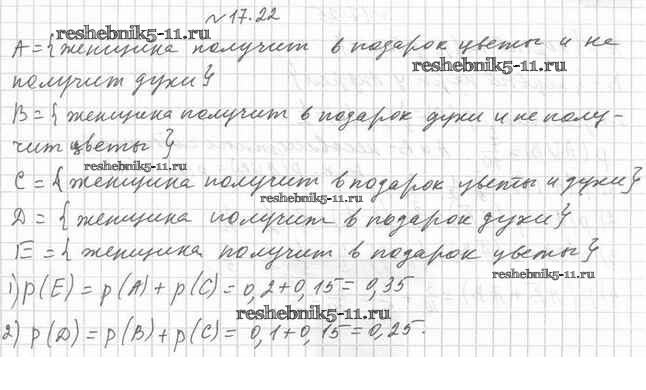 №17.22
reshebnik5-11.ru
A={женщина получит в подарок цветы и не
reshebnik5-11.ru
получит духи}
B={женщина получит в подарок духи и не полу-
чит цветы}
reshebnik5-11.ru
C={женщина получит в подарок цветы и духи}
reshebnik5-11.ru
D={женщина получит в подарок духи}
E={женщина получит в подарок цветы}
reshebnik5-11.ru
1) p(E)=p(A)+p(C)=0,2+0,15=0,35
reshebnik5-11.ru
2) p(D)=p(B)+p(C)=0,1+0,15=0,25.